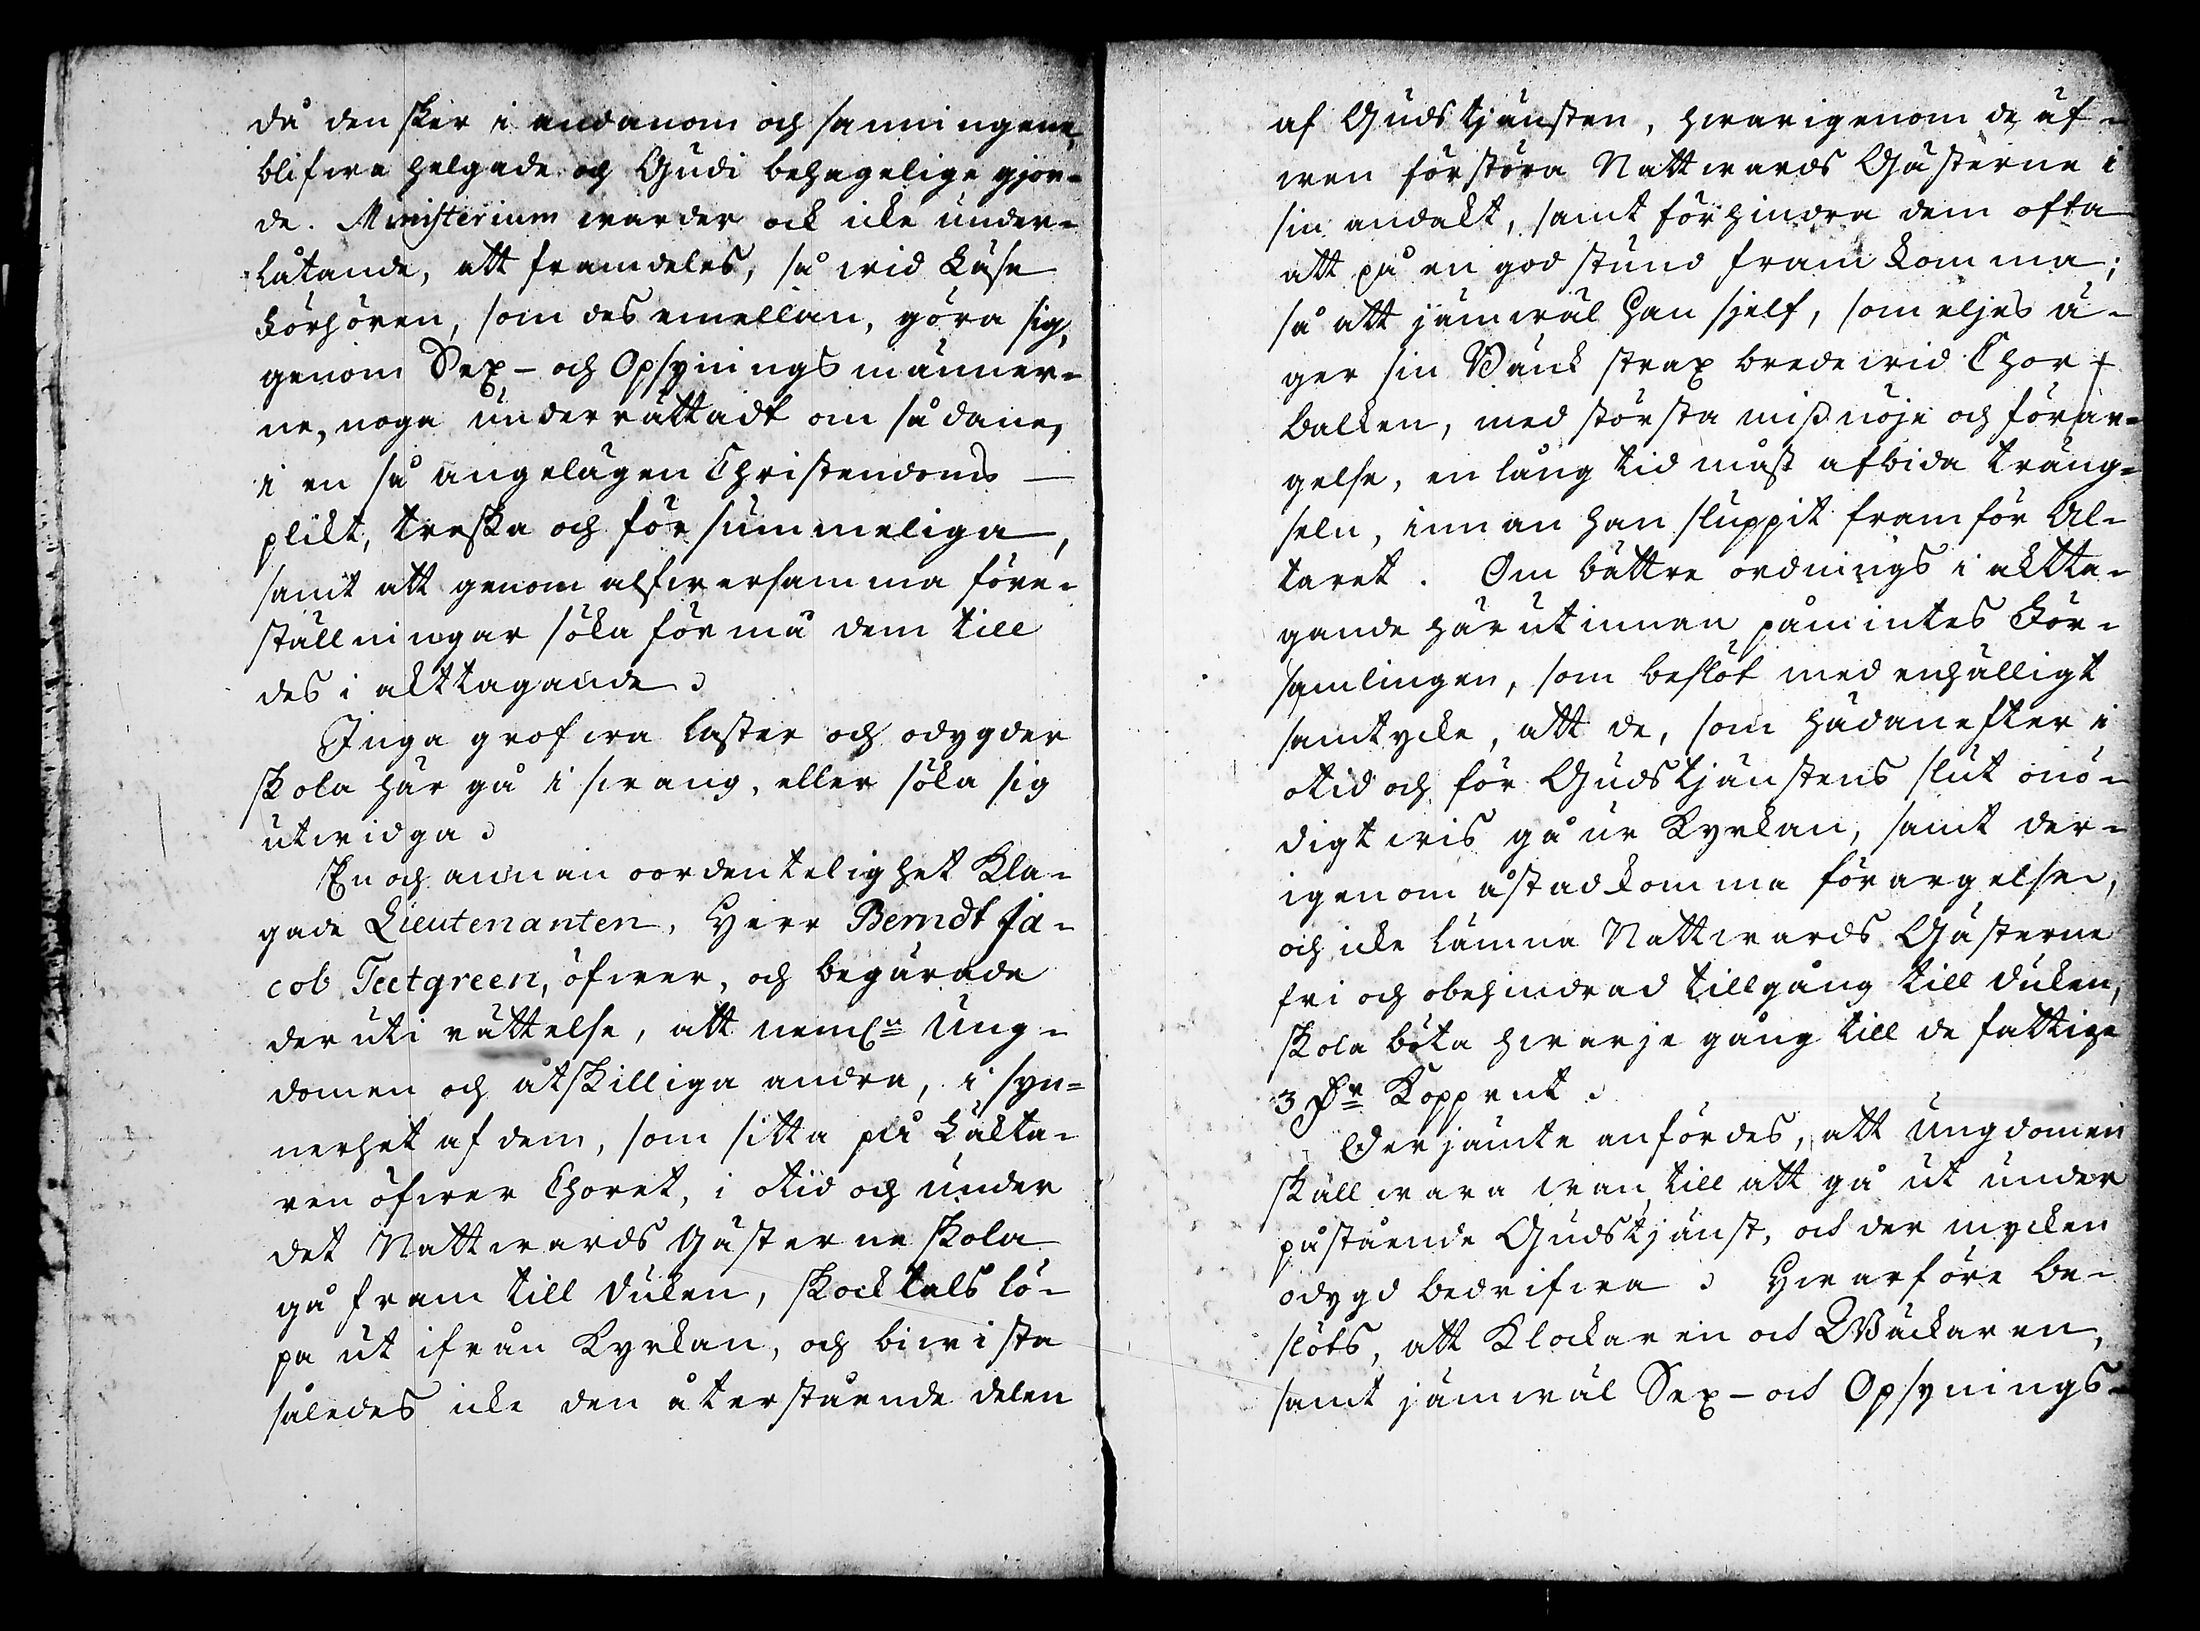 då den sker i andanom och sanningene,
blifwa helgade och Gudi behagelige gjor-
de. Ministerium warder ock icke under-
låtande, att framdeles, så wid Läse
Förhören, som des emellan, göra sig,
genom Sex- och Opsynings männer-
ne, noga underrättadt om sådane,
i en så angelägen Christendoms-
plikt, treska och försummeliga,
samt att genom alfwersamma före-
ställningar söka förmå dem till
des i akttagande.
Inga grofwa laster och odygder
skola här gå i swang, eller söka sig
utwidga.
En och annan oordentelighet kla-
gade Lieutenanten, Herr Berndt Ja-
cob Teetgreen, öfwer, och begärade
der uti rättelse, att neml:n Ung-
domen och åtskilliga andra, i syn-
nerhet af dem, som sitta på Läkta-
ren öfwer Choret, i otid och under
det Nattwards Gästerne skola
gå fram till Duken, skocktals lö-
pa ut ifrån Kyrkan, och biwista
således icke den återstående delen
af Gudstjänsten, hwarigenom de äf-
wen förstöra Nattwards Gästerne i
sin andakt, samt förhindra dem ofta
att på en god stund fram komma;
så att jämwäl Han sjelf, som eljes ä-
ger sin Bänk strax brede wid Chor-
balken, med största missnöje och förar-
gelse, en lång tid måst afbida träng-
seln, innan han sluppit fram för Al-
taret. Om bättre ordnings i aktta-
gande härutinnan påmintes För-
samlingen, som beslöt med enhälligt
samtycke, att de, som hädanefter i
otid och för Gudstjänstens slut onö-
digtwis gå ur Kyrkan, samt der-
igenom åstadkomma förargelse,
och icke lämna Nattwards Gästerne
fri och obehindrad tillgång till Duken,
skola böta hwarje gång till de fattige
3 D:r Kopp:mt.
Der jämte anfördes, att Ungdomen
skall wara wan till att gå ut under
påstående Gudstjänst, och der mycken
odygd bedrifwa. Hwarföre be-
slöts, att Klockaren och Wäckaren,
samt jämwäl Sex- och Opsynings-